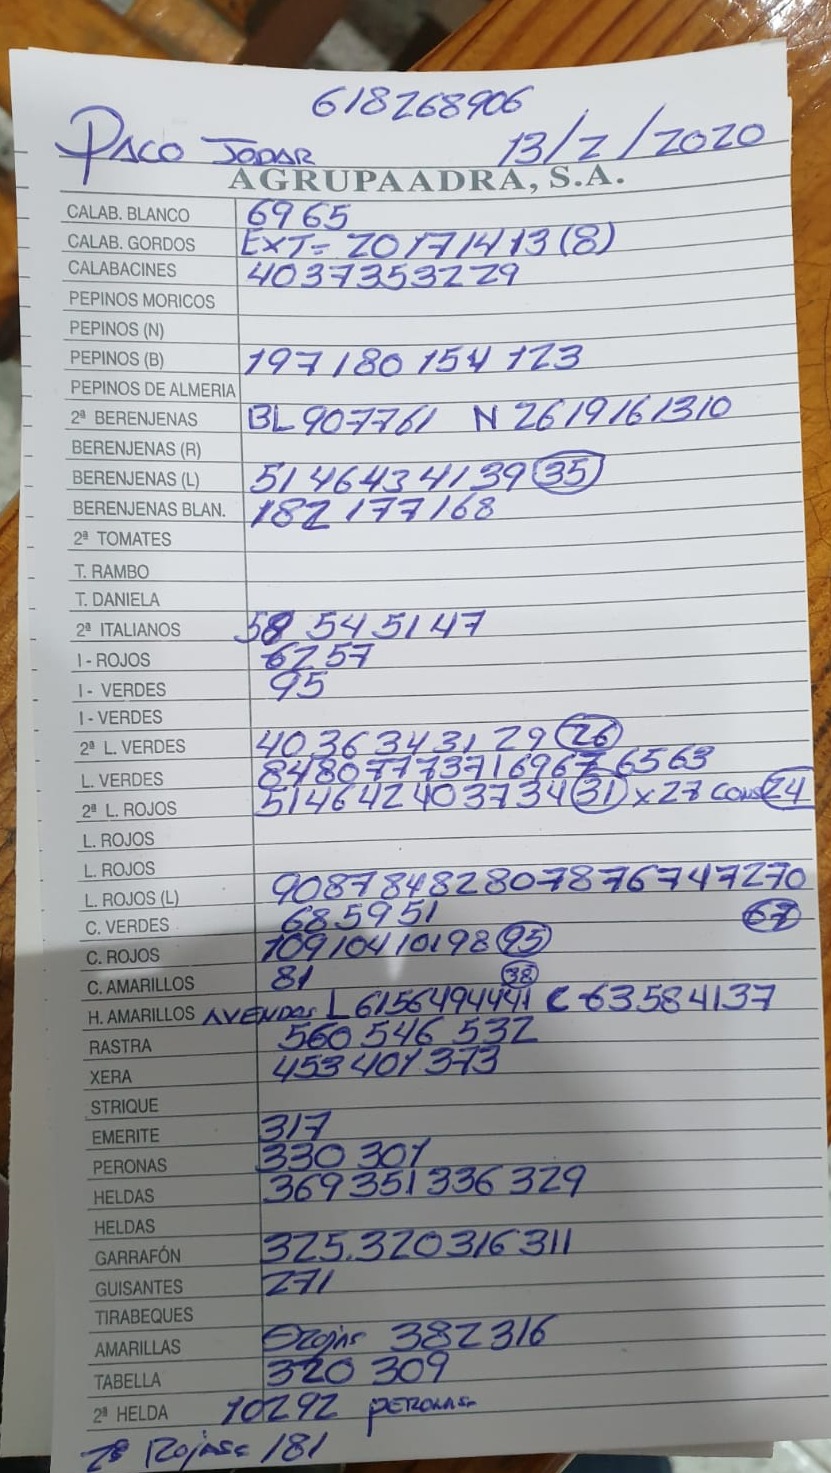 618268906
PACO JODAR 13/2/2020
AGRUPAADRA, S.A.
CALAB. BLANCO 6965
CALAB. GORDOS EXT= 20171413(8)
CALABACINES 4037353229
PEPINOS MORICOS
PEPINOS (N)
PEPINOS (B) 197 180 154 123
PEPINOS DE ALMERIA
2ª BERENJENAS BL 907761 N 2619161310
BERENJENAS (R)
BERENJENAS (L) 51 46 43 41 39 (35)
BERENJENAS BLAN. 182 177 168
2ª TOMATES
T. RAMBO
T. DANIELA
2ª ITALIANOS 58 54 51 47
I - ROJOS 6257
I - VERDES 95
I - VERDES
2ª L. VERDES 40 36 34 31 29 (26)
L. VERDES 84807773716967 6563
2ª L. ROJOS 514642403734(31) x 27 (24)
L. ROJOS
L. ROJOS
L. ROJOS (L) 9087848280787674 7270
C. VERDES 685951 (67)
C. ROJOS 10910410198 (95)
C. AMARILLOS 81 (38)
H. AMARILLOS L 6156494441 C 63584137
RASTRA 560 546 532
XERA 453 401 373
STRIQUE
EMERITE 317
PERONAS 330 301
HELDAS 369 351 336 329
HELDAS
GARRAFÓN 325.320 316 311
GUISANTES 271
TIRABEQUES
AMARILLAS 382 316
TABELLA 320 309
2ª HELDA 10292 PERONAS
2ª Rojas= 181